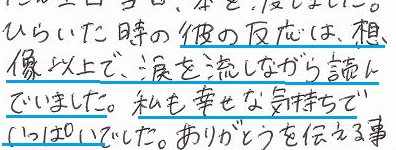 ひらいた時の彼の反応は、想
像以上で、涙を流しながら読ん
でいました。私も幸せな気持ちで
いっぱいでした。ありがとうを伝える事